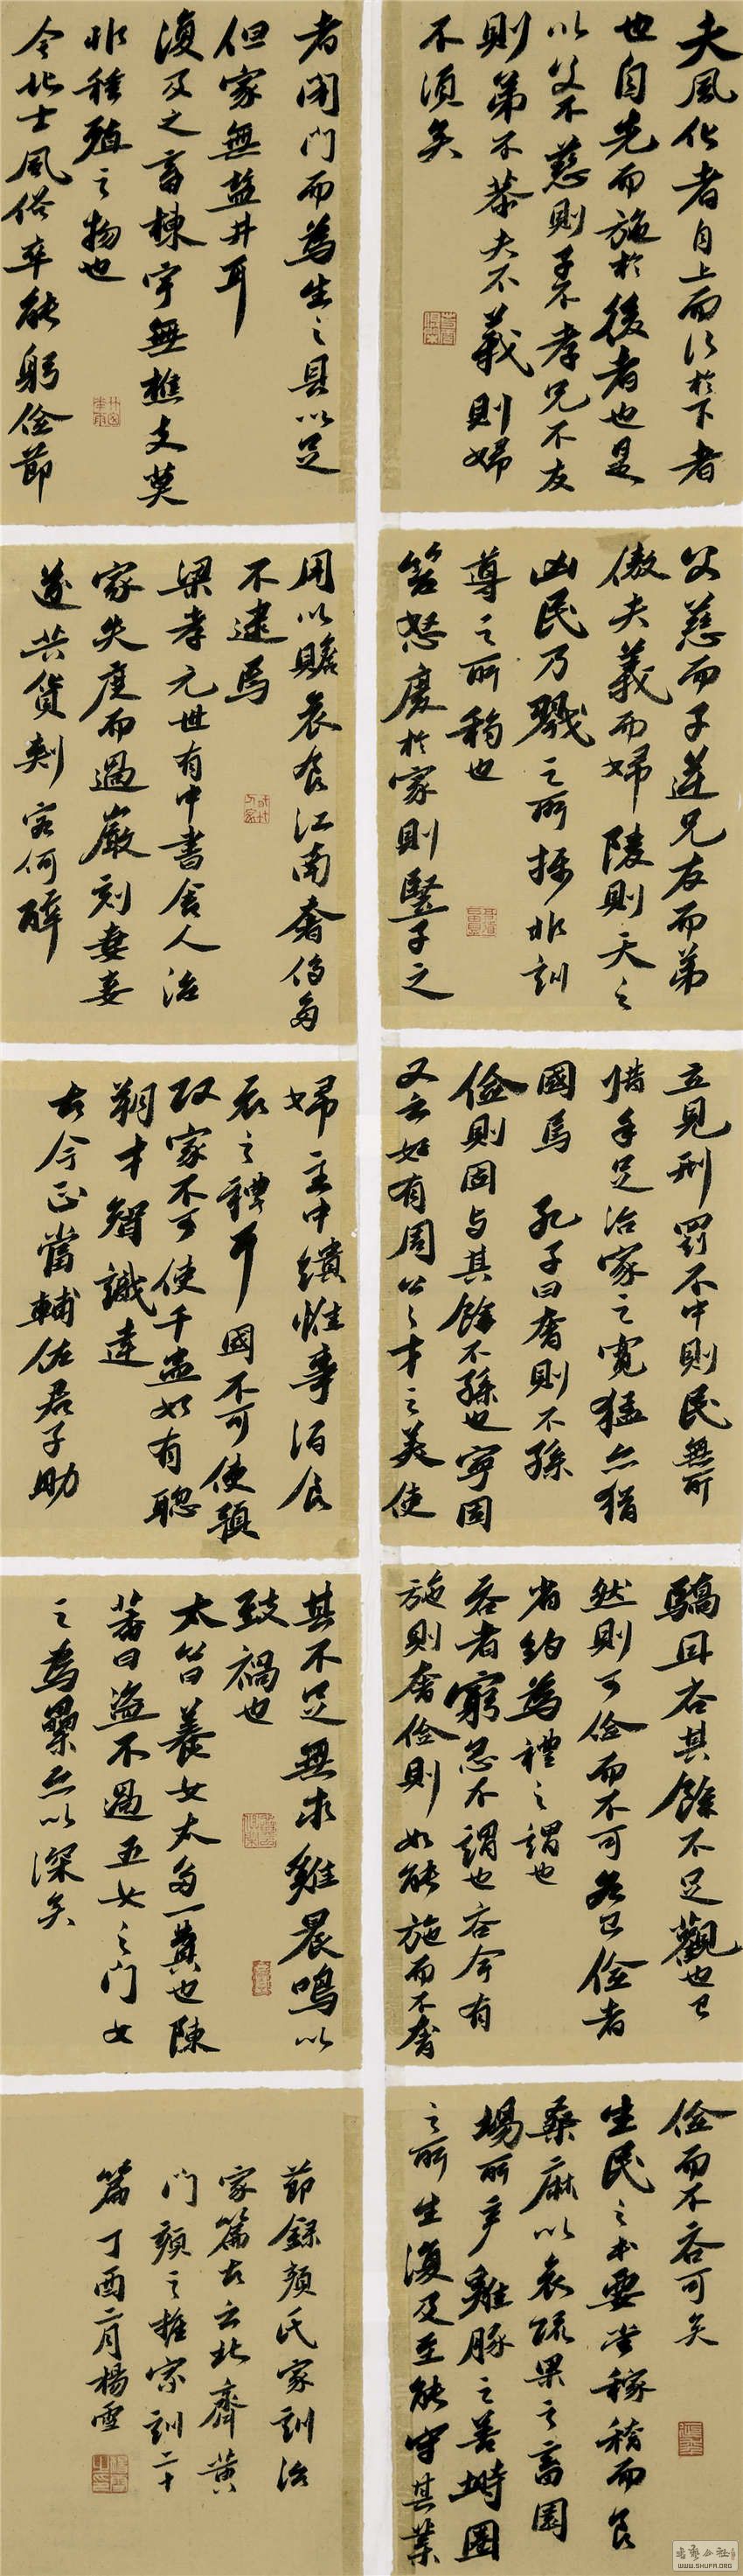 夫風化者自上而行於下者
也自先而施於後者也是
以父不慈則子不孝兄不友
則弟不恭夫不義則婦
不順矣
父慈而子逆兄友而弟
傲夫義而婦陵則天之
凶民乃戮之所攝非訓
導之所移也
笞怒廢於家則豎子之
立見刑罰不中則民無所
措手足治家之寬猛亦猶
國焉孔子曰奢則不孫
儉則固與其餘不孫也寧固
又云如有周公之才之美使
驕且吝其餘不足觀也已
然則可儉而不可吝已儉者
省約為禮之謂也
吝者窮急不謂也吝今有
施則奢儉則如能施而不奢
儉而不吝可矣
生民之本要當稼穡而食
桑麻以衣蔬果之畜園
場所產雞豚之善塒圈
之所生復及至能守其業
者閉門而為生之具以足
但家無鹽井耳
復及之畜棟宇無樵支莫
非種殖之物也
今北土風俗率能躬儉節
用以贍衣食江南奢侈多
不逮焉
梁孝元世有中書舍人治
家失度而過嚴刻妻妾
遂共貨刺客何醉
婦主中饋惟事酒食
衣之禮耳國不可使預
政家不可使干蠱如有聰
朔才智識達
古今正當輔佐君子助
其不足無求雞晨鳴以
致禍也
太公曰養女太多一費也陳
蕃曰盜不過五女之門女
之為累亦以深矣
節錄顏氏家訓治
家篇古云北齊黃
門顏之推家訓二十
篇丁酉二月楊雪
WWW.SHUFA.ORG